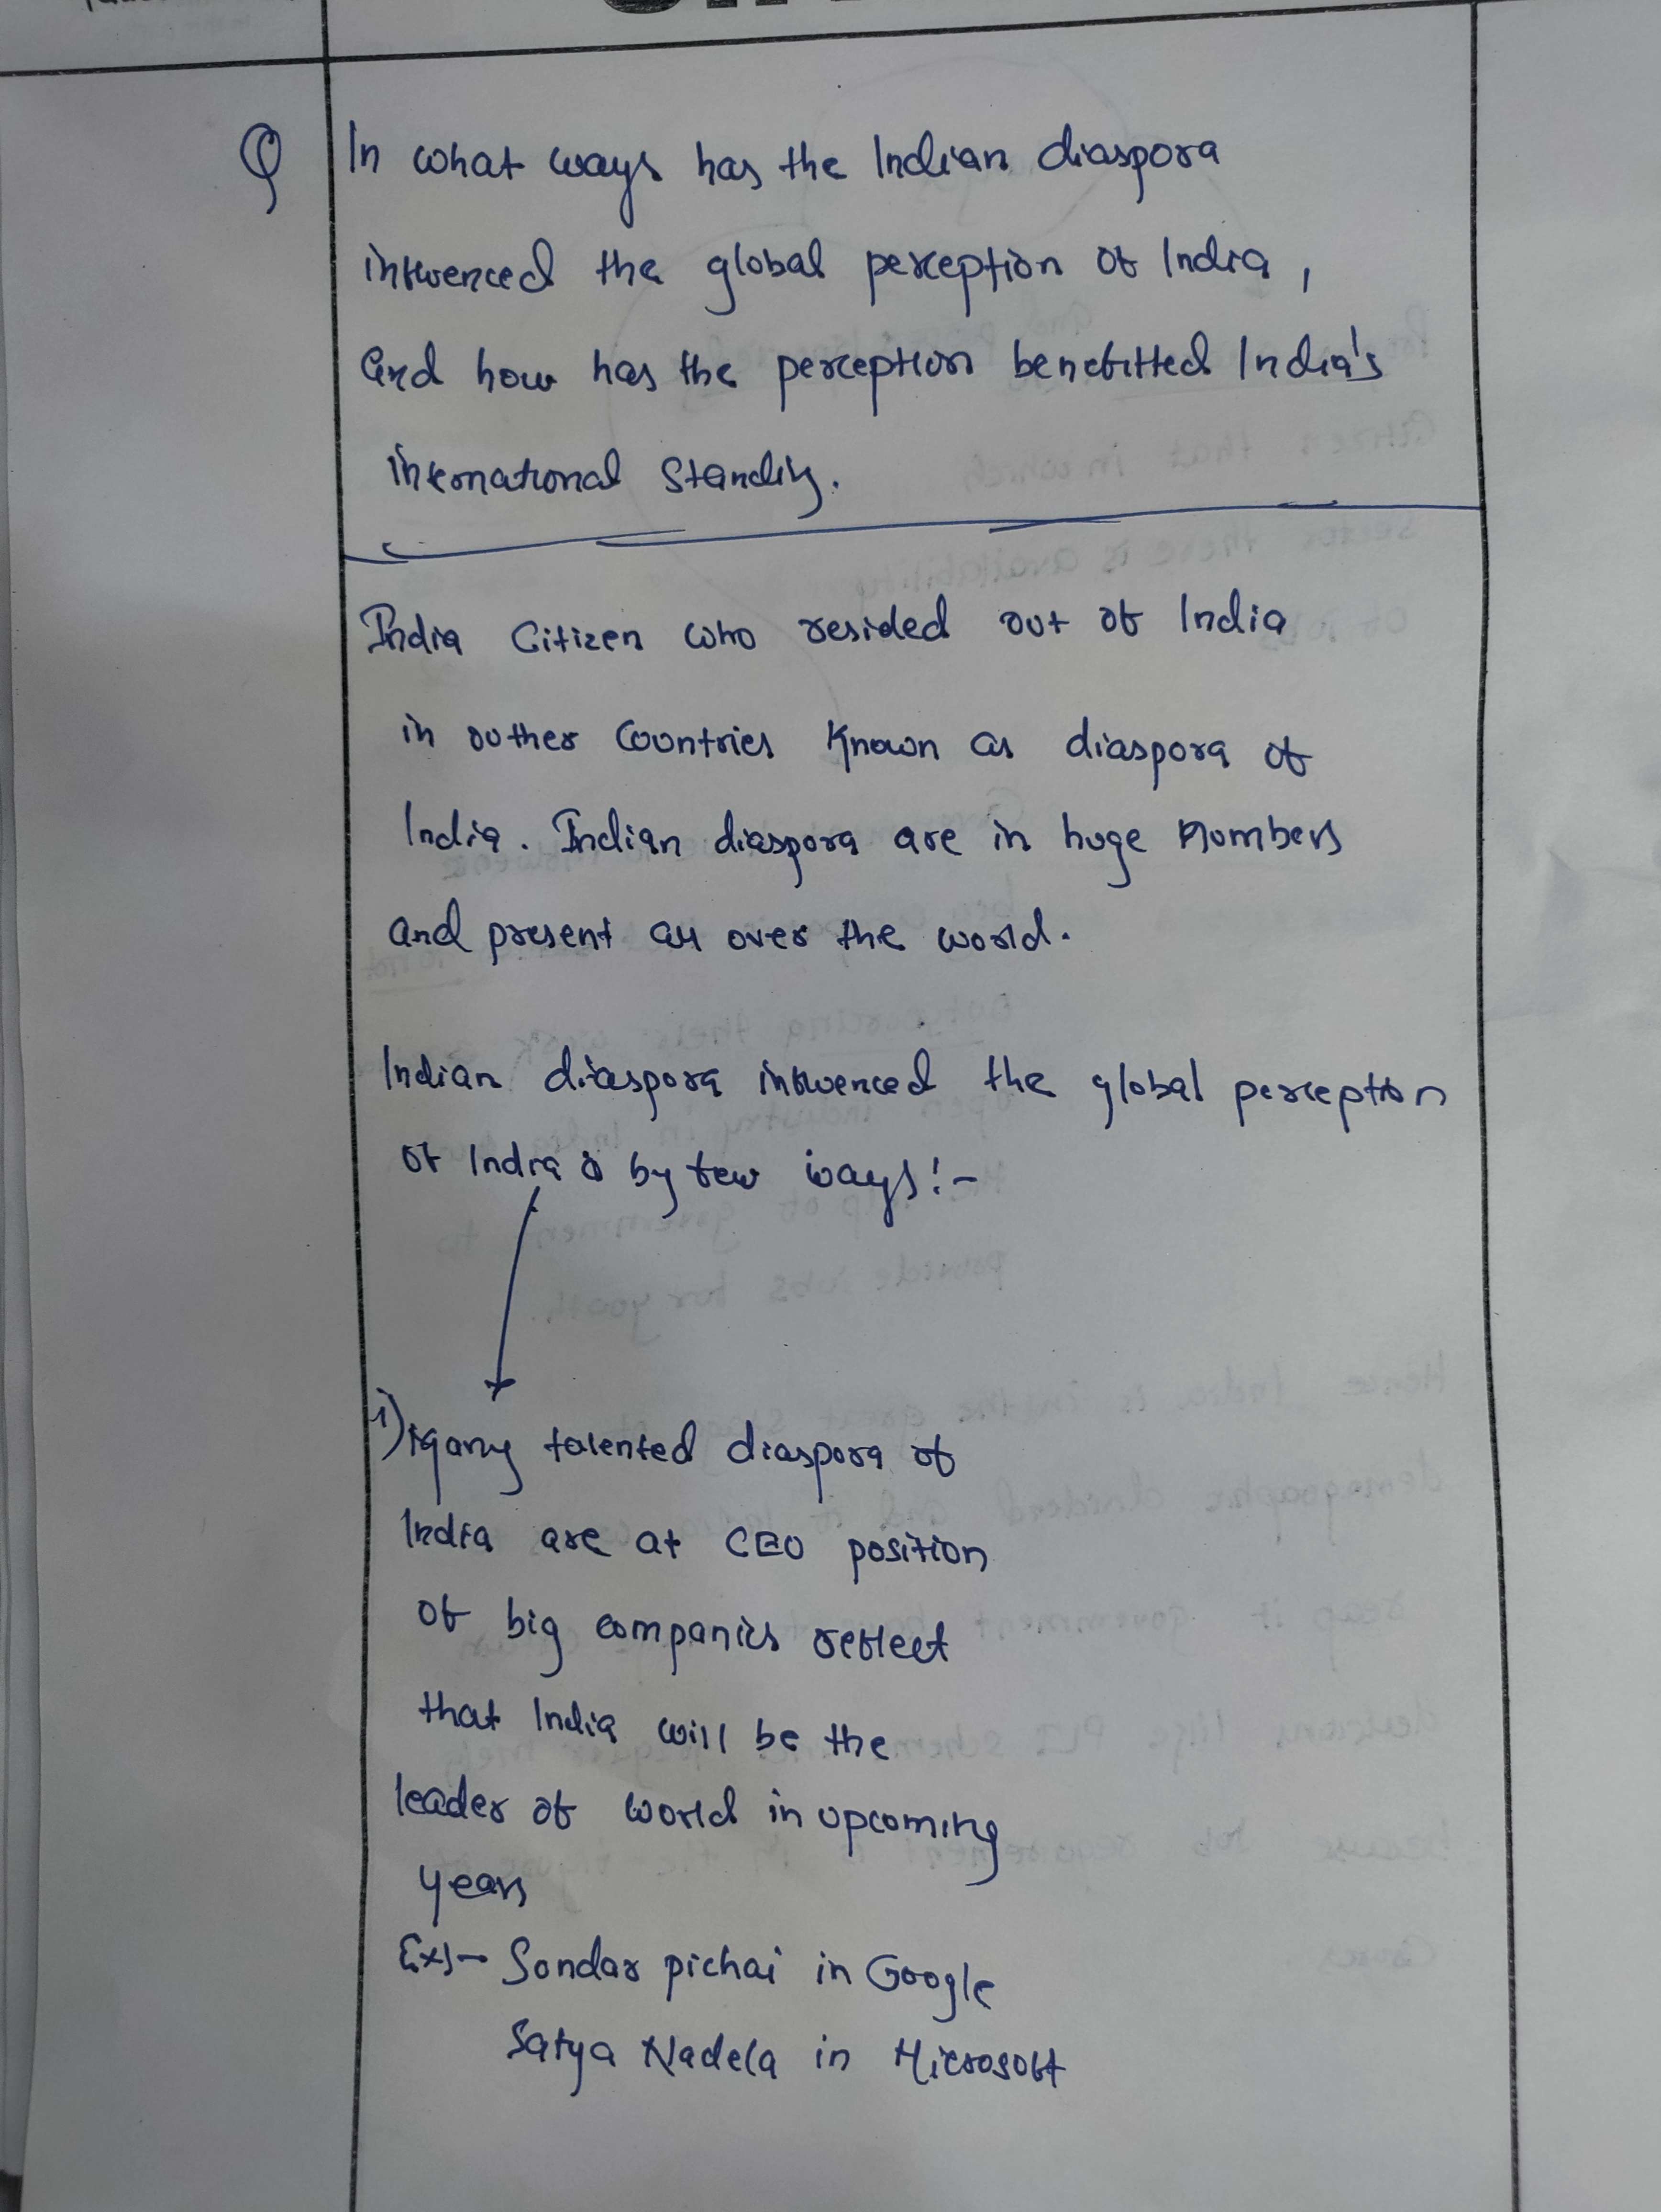 Q In what ways has the Indian diaspora
influenced the global perception of India,
and how has the perception benefitted India's
international standing.
India Citizen who resided out of India
in outher countries known as diaspora of
India. Indian diaspora are in huge numbers
and present all over the world.
Indian diaspora influenced the global perception
of India by few ways:-
1) Many talented diaspora of
India are at CEO position
of big companies reflect
that India will be the
leader of world in upcoming
years
Ex:- Sundar pichai in Google
Satya Nadela in Microsoft